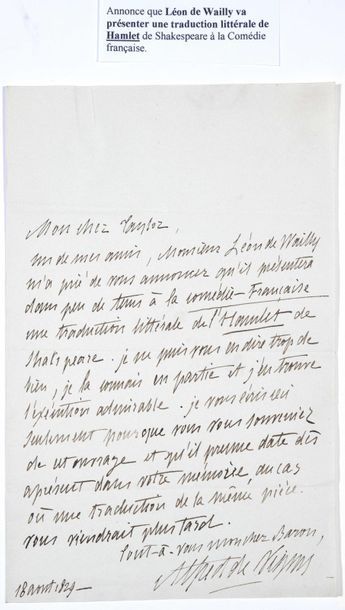 Annonce que Léon de Wailly va
présenter une traduction littérale de
Hamlet de Shakespeare à la Comédie
française.
Mon cher Taylor,
un de mes amis, Monsieur Léon de Wailly
m'a prié de vous annoncer qu'il présentera
dans peu de tems à la comédie-Française
une traduction littérale de l'Hamlet de
Shakspeare. je ne puis vous en dire trop de
bien, je la connais en partie et j'en trouve
l'exécution admirable. je vous écris ceci
seulement pour que vous vous souveniez
de cet ouvrage et qu'il prenne date dès
aprésent dans votre mémoire, au cas
où une traduction de la même pièce
vous viendrait plus tard.
tout-à-vous mon cher Baron,
Alfred de Vigny
18 aout 1829 —